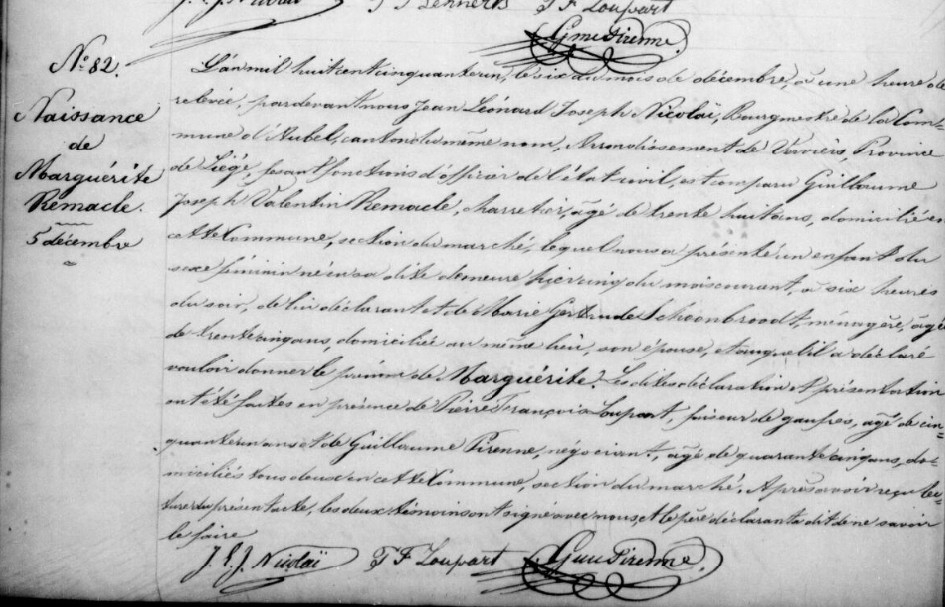 J. L. J. Nicolaï P F Lennerts P F Loupart
Gme Pirenne
N.º 82.
Naissance
de
Marguérite
Remacle.
5 décembre
L'an mil huit cent cinquante un, le six du mois de décembre, à une heure de
relevée, pardevant nous Jean Léonard Joseph Nicolaï, Bourgmestre de la Com=
mune d'Aubel, canton du même nom, Arrondissement de Verviers, Province
de Liége, fesant fonctions d'officier de l'état civil, est comparu Guillaume
Joseph Valentin Remacle, charretier, âgé de trente huit ans, domicilié en
cette Commune, section du marché, lequel nous a présenté un enfant du
sexe féminin né en sa dite demeure hier cinq du mois courant, à six heures
du soir, de lui déclarant et de Marie Gertrude Schoonbroodt, ménagère, âgée
de trente cinq ans, domiciliée au même lieu, son épouse, et auquel il a déclaré
vouloir donner le prénom de Marguérite. Les dites déclaration et présentation
ont été faites en présence de Pierre François Loupart, faiseur de gaufres, âgé de cin=
quante un ans et de Guillaume Pirenne, négociant, âgé de quarante cinq ans, do=
miciliés tous deux en cette Commune, section du marché. Après avoir reçu lec=
ture du présent acte, les deux témoins ont signé avec nous et le père déclarant a dit de ne savoir
le faire
J. L. J. Nicolaï P F Loupart Gme Pirenne